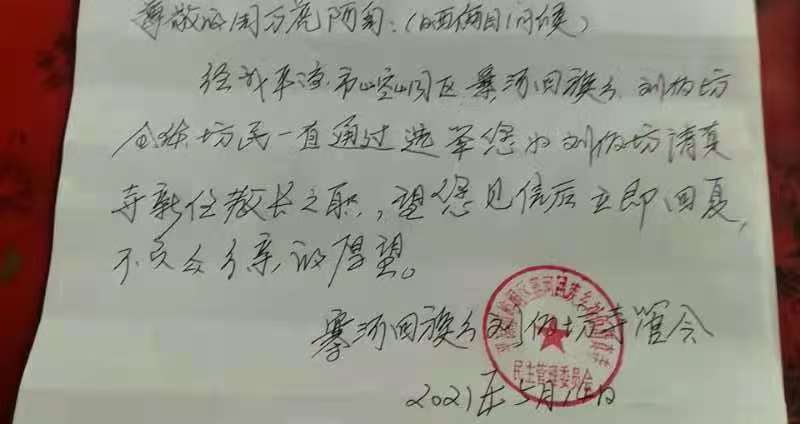 尊敬的周万虎阿訇：（色兩目问候）
经我平凉市崆峒区寨河回族乡刘伪坊
全体坊民一直通过选举您为刘伪坊清真
寺新任教长之职，望您见信后立即回复，
不负众乡亲的厚望。
寨河回族乡刘伪坊寺管会
民主管理委员会
2021年5月14日